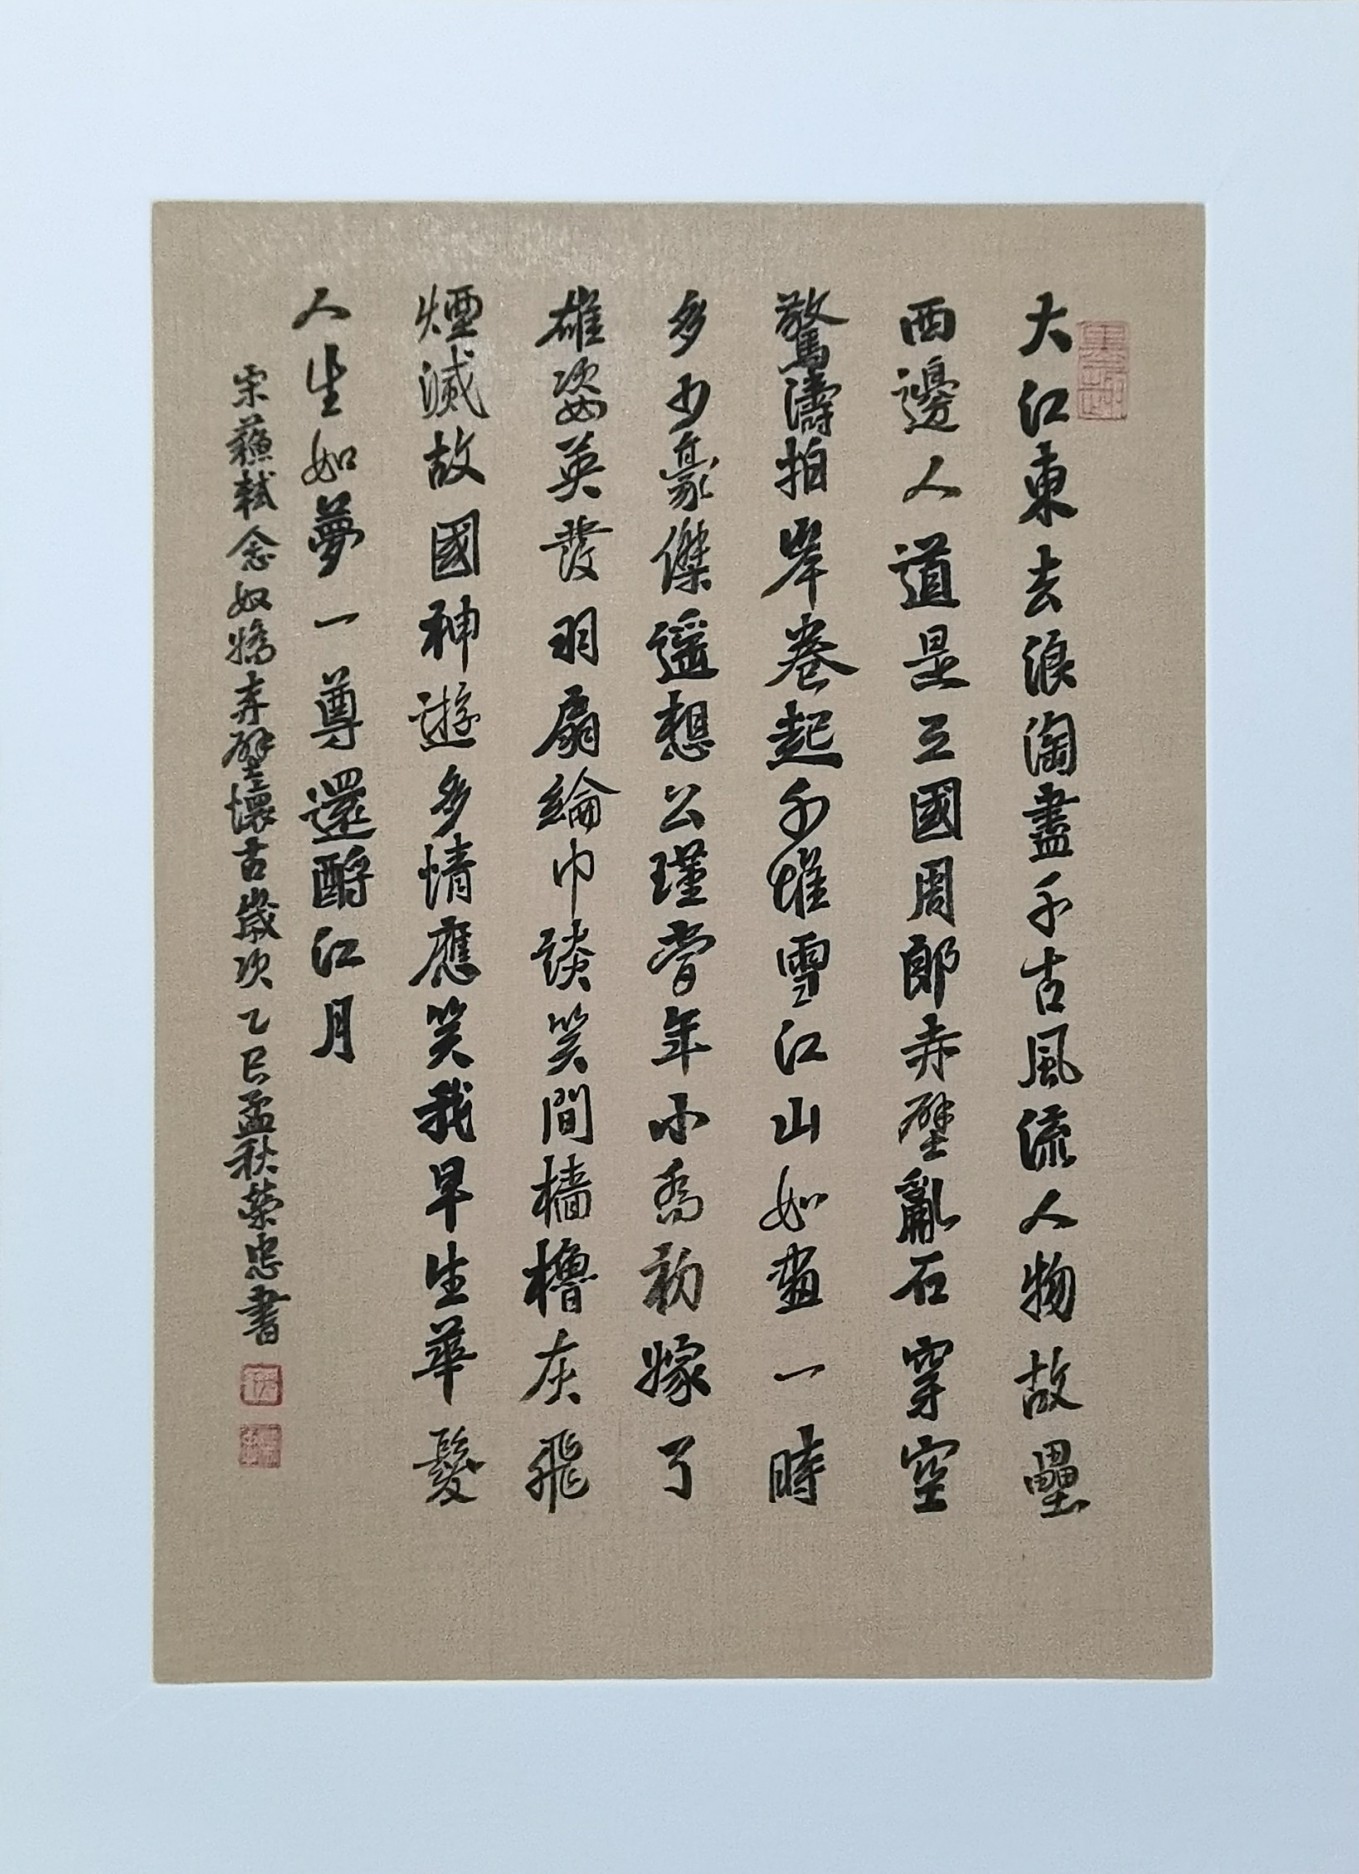 大江東去浪淘盡千古風流人物故壘
西邊人道是三國周郎赤壁亂石穿空
驚濤拍岸卷起千堆雪江山如畫一時
多少豪傑遥想公瑾當年小喬初嫁了
雄姿英發羽扇綸巾談笑間檣櫓灰飛
煙滅故國神遊多情應笑我早生華髮
人生如夢一尊還酹江月
宋蘇軾念奴嬌赤壁懷古歲次乙巳孟秋榮忠書